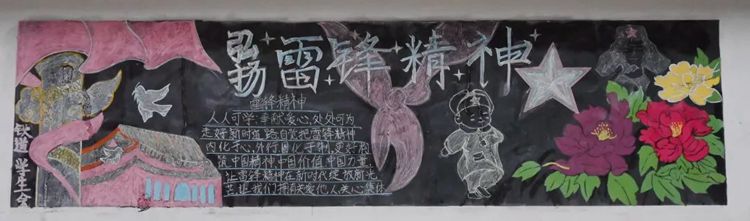 弘扬
雷锋精神
雷锋精神
人人可学,奉献爱心,处处可为
走好新时道路自觉把雷锋精神
内化于心,外行
中国精神,中国价值,中国力量,
让雷锋精神在新时代绽放新光
芒,让我们
学生会